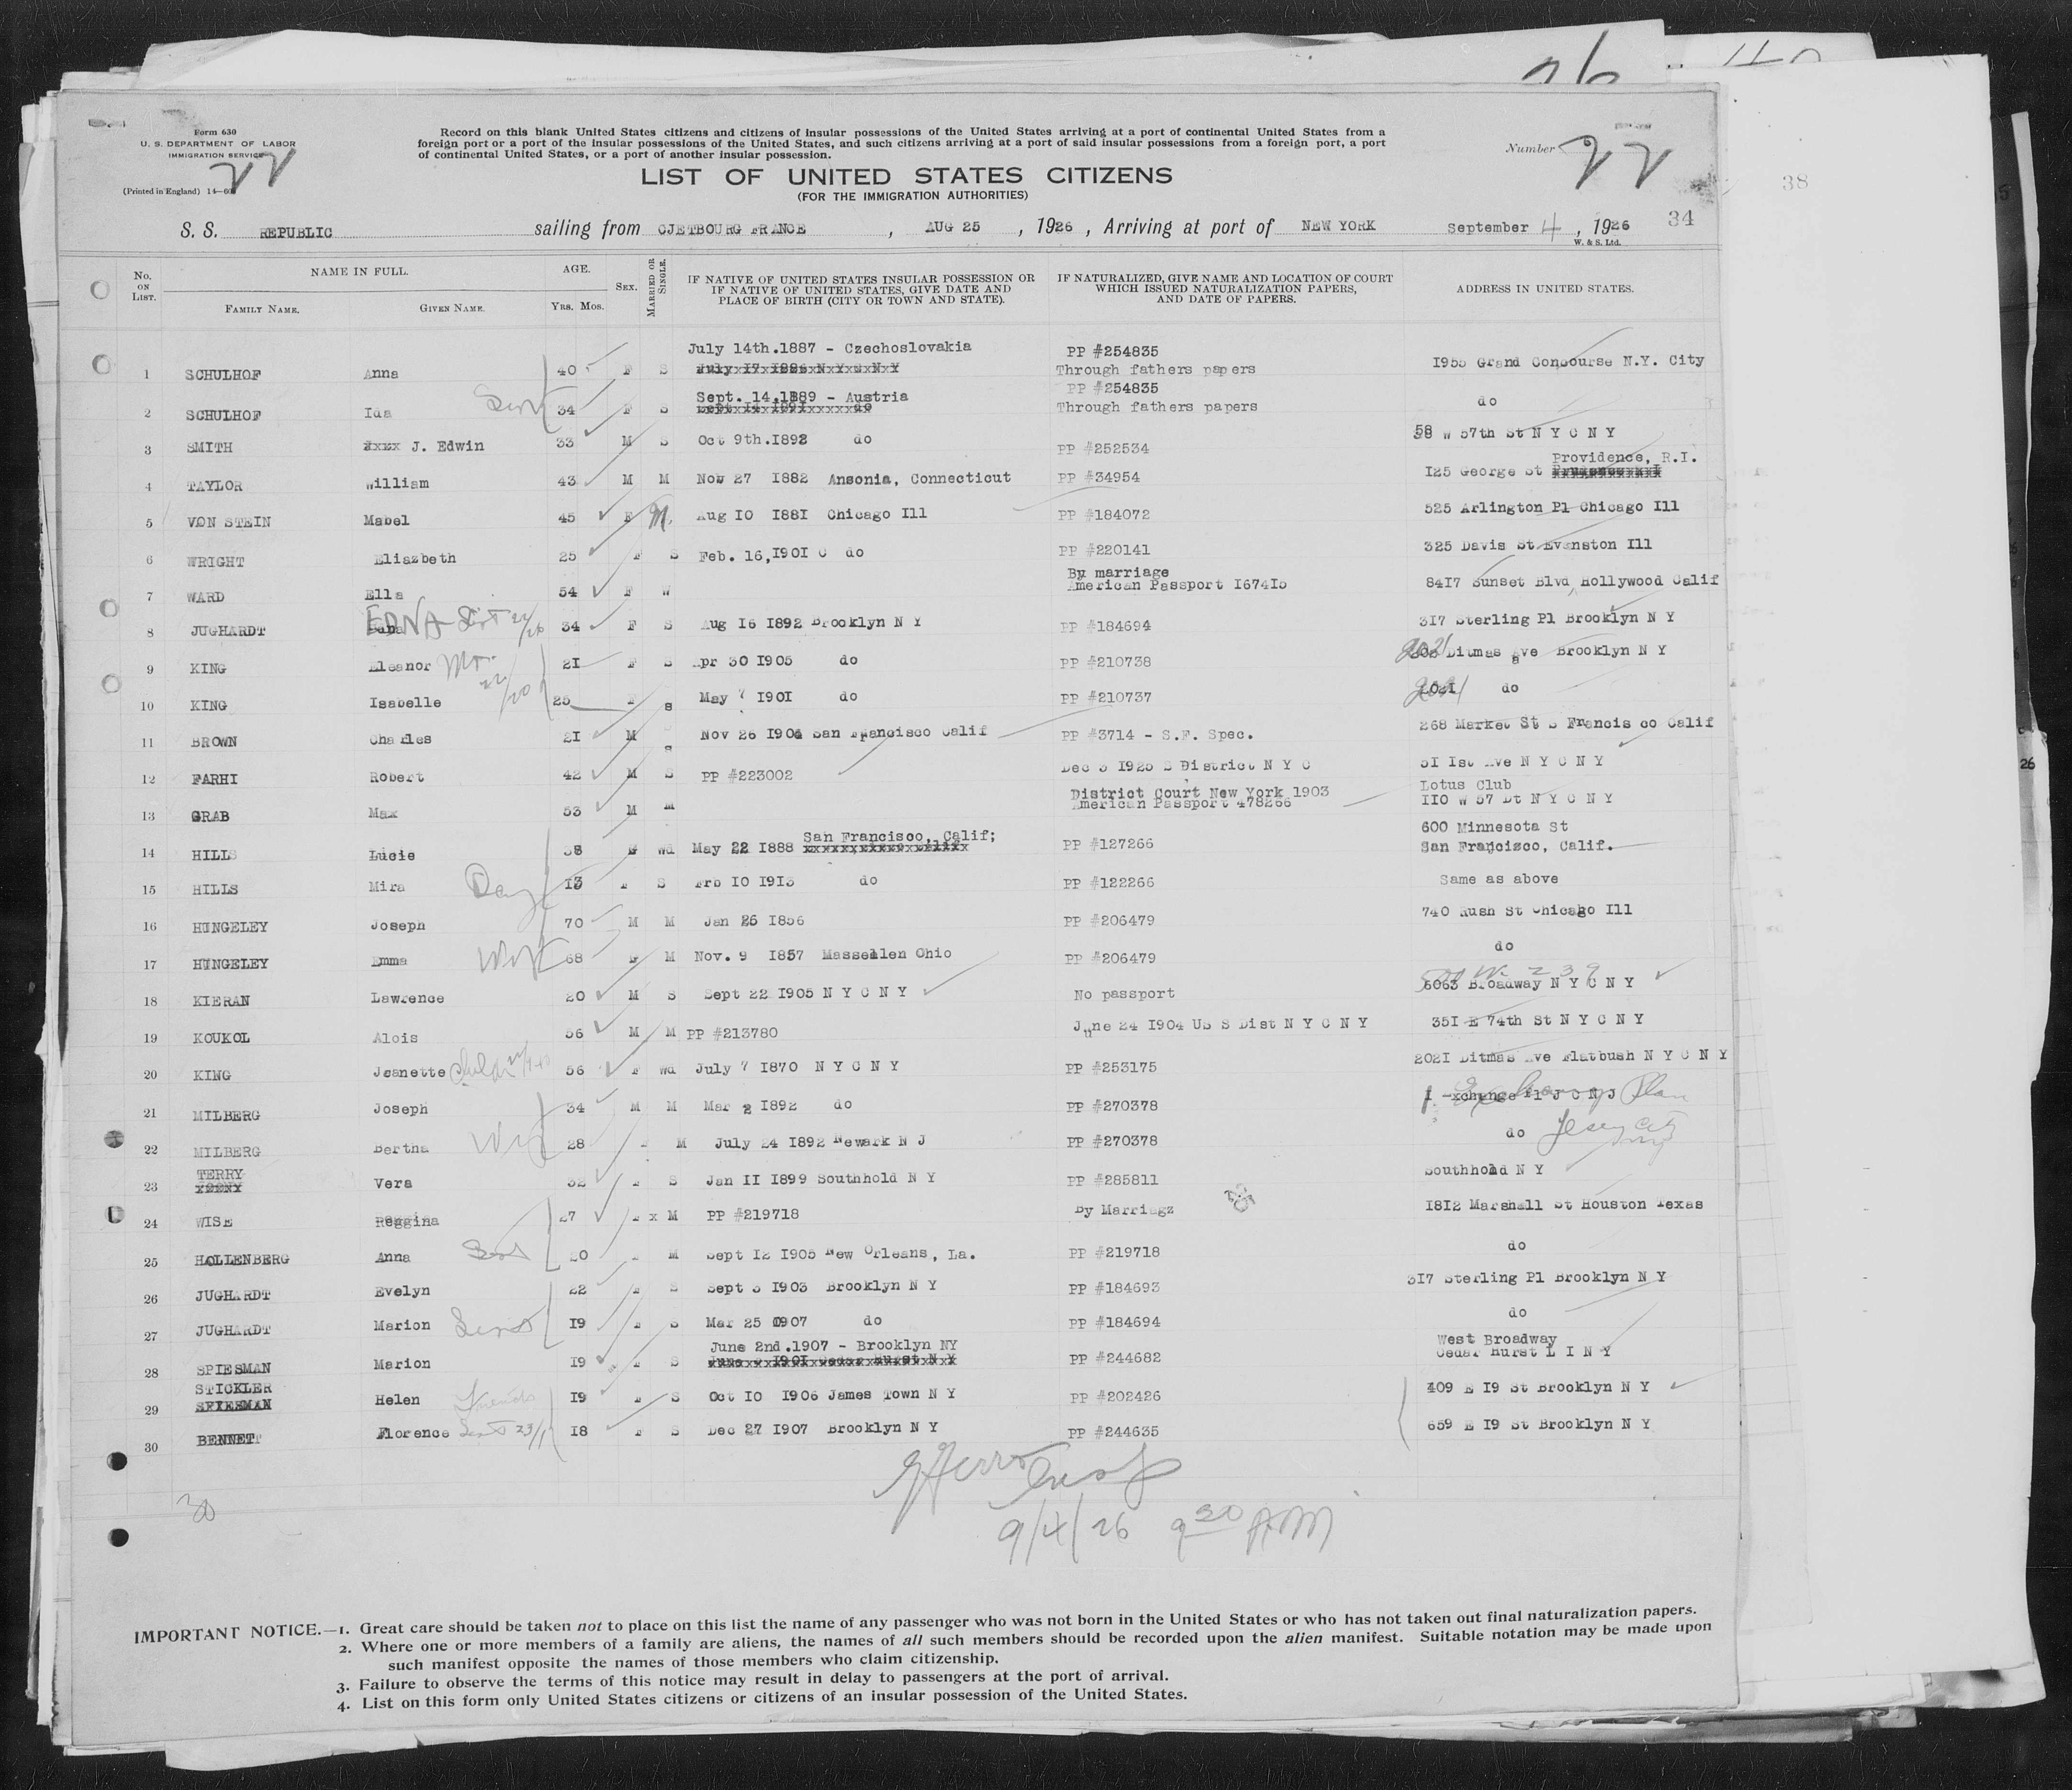 Form 630
U. S. DEPARTMENT OF LABOR
IMMIGRATION SERVICE
(Printed in England) 14—60
22
Record on this blank United States citizens and citizens of insular possessions of the United States arriving at a port of continental United States from a
foreign port or a port of the insular possessions of the United States, and such citizens arriving at a port of said insular possessions from a foreign port, a port
of continental United States, or a port of another insular possession.
Number 22
38
LIST OF UNITED STATES CITIZENS
(FOR THE IMMIGRATION AUTHORITIES)
S. S. REPUBLIC sailing from CJETBOURG FRANCE , AUG 25 , 1926 , Arriving at port of NEW YORK September 4 , 1926 34
W. & S. Ltd.
No. ON LIST. NAME IN FULL. FAMILY NAME. GIVEN NAME. AGE. YRS. MOS. SEX. MARRIED OR SINGLE. IF NATIVE OF UNITED STATES INSULAR POSSESSION OR IF NATIVE OF UNITED STATES, GIVE DATE AND PLACE OF BIRTH (CITY OR TOWN AND STATE). IF NATURALIZED, GIVE NAME AND LOCATION OF COURT WHICH ISSUED NATURALIZATION PAPERS, AND DATE OF PAPERS. ADDRESS IN UNITED STATES.
July 14th.1887 - Czechoslovakia PP #254835
1 SCHULHOF Anna 40 F S Through fathers papers 1955 Grand Concourse N.Y. City
Sept. 14.1889 - Austria PP #254835
2 SCHULHOF Ida 34 F S Through fathers papers do
3 SMITH J. Edwin 33 M S Oct 9th.1892 do PP #252534 58 W 57th St N Y C N Y
Providence, R.I.
4 TAYLOR William 43 M M Nov 27 1882 Ansonia, Connecticut PP #34954 125 George St
5 VON STEIN Mabel 45 F M Aug 10 1881 Chicago Ill PP #184072 525 Arlington Pl Chicago Ill
6 WRIGHT Eliazbeth 25 F S Feb. 16,1901 C do PP #220141 325 Davis St Evanston Ill
By marriage
7 WARD Ella 54 F W American Passport 167415 8417 Sunset Blvd, Hollywood Calif
8 JUGHARDT EDNA 34 F S Aug 16 1892 Brooklyn N Y PP #184694 317 Sterling Pl Brooklyn N Y
9 KING Eleanor 21 F S Apr 30 1905 do PP #210738 2021 Ditmas Ave Brooklyn N Y
10 KING Isabelle 25 F S May 7 1901 do PP #210737 2021 do
11 BROWN Charles 21 M S Nov 26 1904 San Francisco Calif PP #3714 - S.F. Spec. 268 Market St S Francis co Calif
12 FARHI Robert 42 M S PP #223002 Dec 3 1925 S District N Y C 51 1st Ave N Y C N Y
District Court New York 1903 Lotus Club
13 GRAB Max 53 M M American Passport 478266 110 W 57 St N Y C N Y
San Francisco, Calif; 600 Minnesota St
14 HILLS Lucie 38 F Wd May 22 1888 PP #127266 San Francisco, Calif.
15 HILLS Mira 13 F S Frb 10 1913 do PP #122266 Same as above
16 HINGELEY Joseph 70 M M Jan 26 1856 PP #206479 740 Rush St Chicago Ill
17 HINGELEY Emma Wife 68 F M Nov. 9 1857 Massellen Ohio PP #206479 do
18 KIERAN Lawrence 20 M S Sept 22 1905 N Y C N Y No passport 6063 Broadway N Y C N Y
19 KOUKOL Alois 56 M M PP #213780 June 24 1904 US S Dist N Y C N Y 351 E 74th St N Y C N Y
20 KING Jeanette 56 F Wd July 7 1870 N Y C N Y PP #253175 2021 Ditmas Ave Flatbush N Y C N Y
21 MILBERG Joseph 34 M M Mar 2 1892 do PP #270378 1 Exchange Pl J C N J
22 MILBERG Bertha Wife 28 F M July 24 1892 Newark N J PP #270378 do Jersey City
TERRY
23 Vera 32 F S Jan 11 1899 Southhold N Y PP #285811 Southhold N Y
24 WISE Reggina 27 F x M PP #219718 By Marriagz 1812 Marshall St Houston Texas
25 HOLLENBERG Anna 20 F M Sept 12 1905 New Orleans, La. PP #219718 do
26 JUGHARDT Evelyn 22 F S Sept 3 1903 Brooklyn N Y PP #184693 317 Sterling Pl Brooklyn N Y
27 JUGHARDT Marion 19 F S Mar 25 1907 do PP #184694 do
June 2nd.1907 - Brooklyn NY West Broadway
28 SPIESMAN Marion 19 F S PP #244682 Cedar hurst L I N Y
STICKLER
29 SPIESMAN Helen Friends 19 F S Oct 10 1906 James Town N Y PP #202426 409 E 19 St Brooklyn N Y
30 BENNETT Florence 18 F S Dec 27 1907 Brooklyn N Y PP #244635 659 E 19 St Brooklyn N Y
30
9/4/26 9 30 AM
IMPORTANT NOTICE.—1. Great care should be taken not to place on this list the name of any passenger who was not born in the United States or who has not taken out final naturalization papers.
2. Where one or more members of a family are aliens, the names of all such members should be recorded upon the alien manifest. Suitable notation may be made upon
such manifest opposite the names of those members who claim citizenship.
3. Failure to observe the terms of this notice may result in delay to passengers at the port of arrival.
4. List on this form only United States citizens or citizens of an insular possession of the United States.